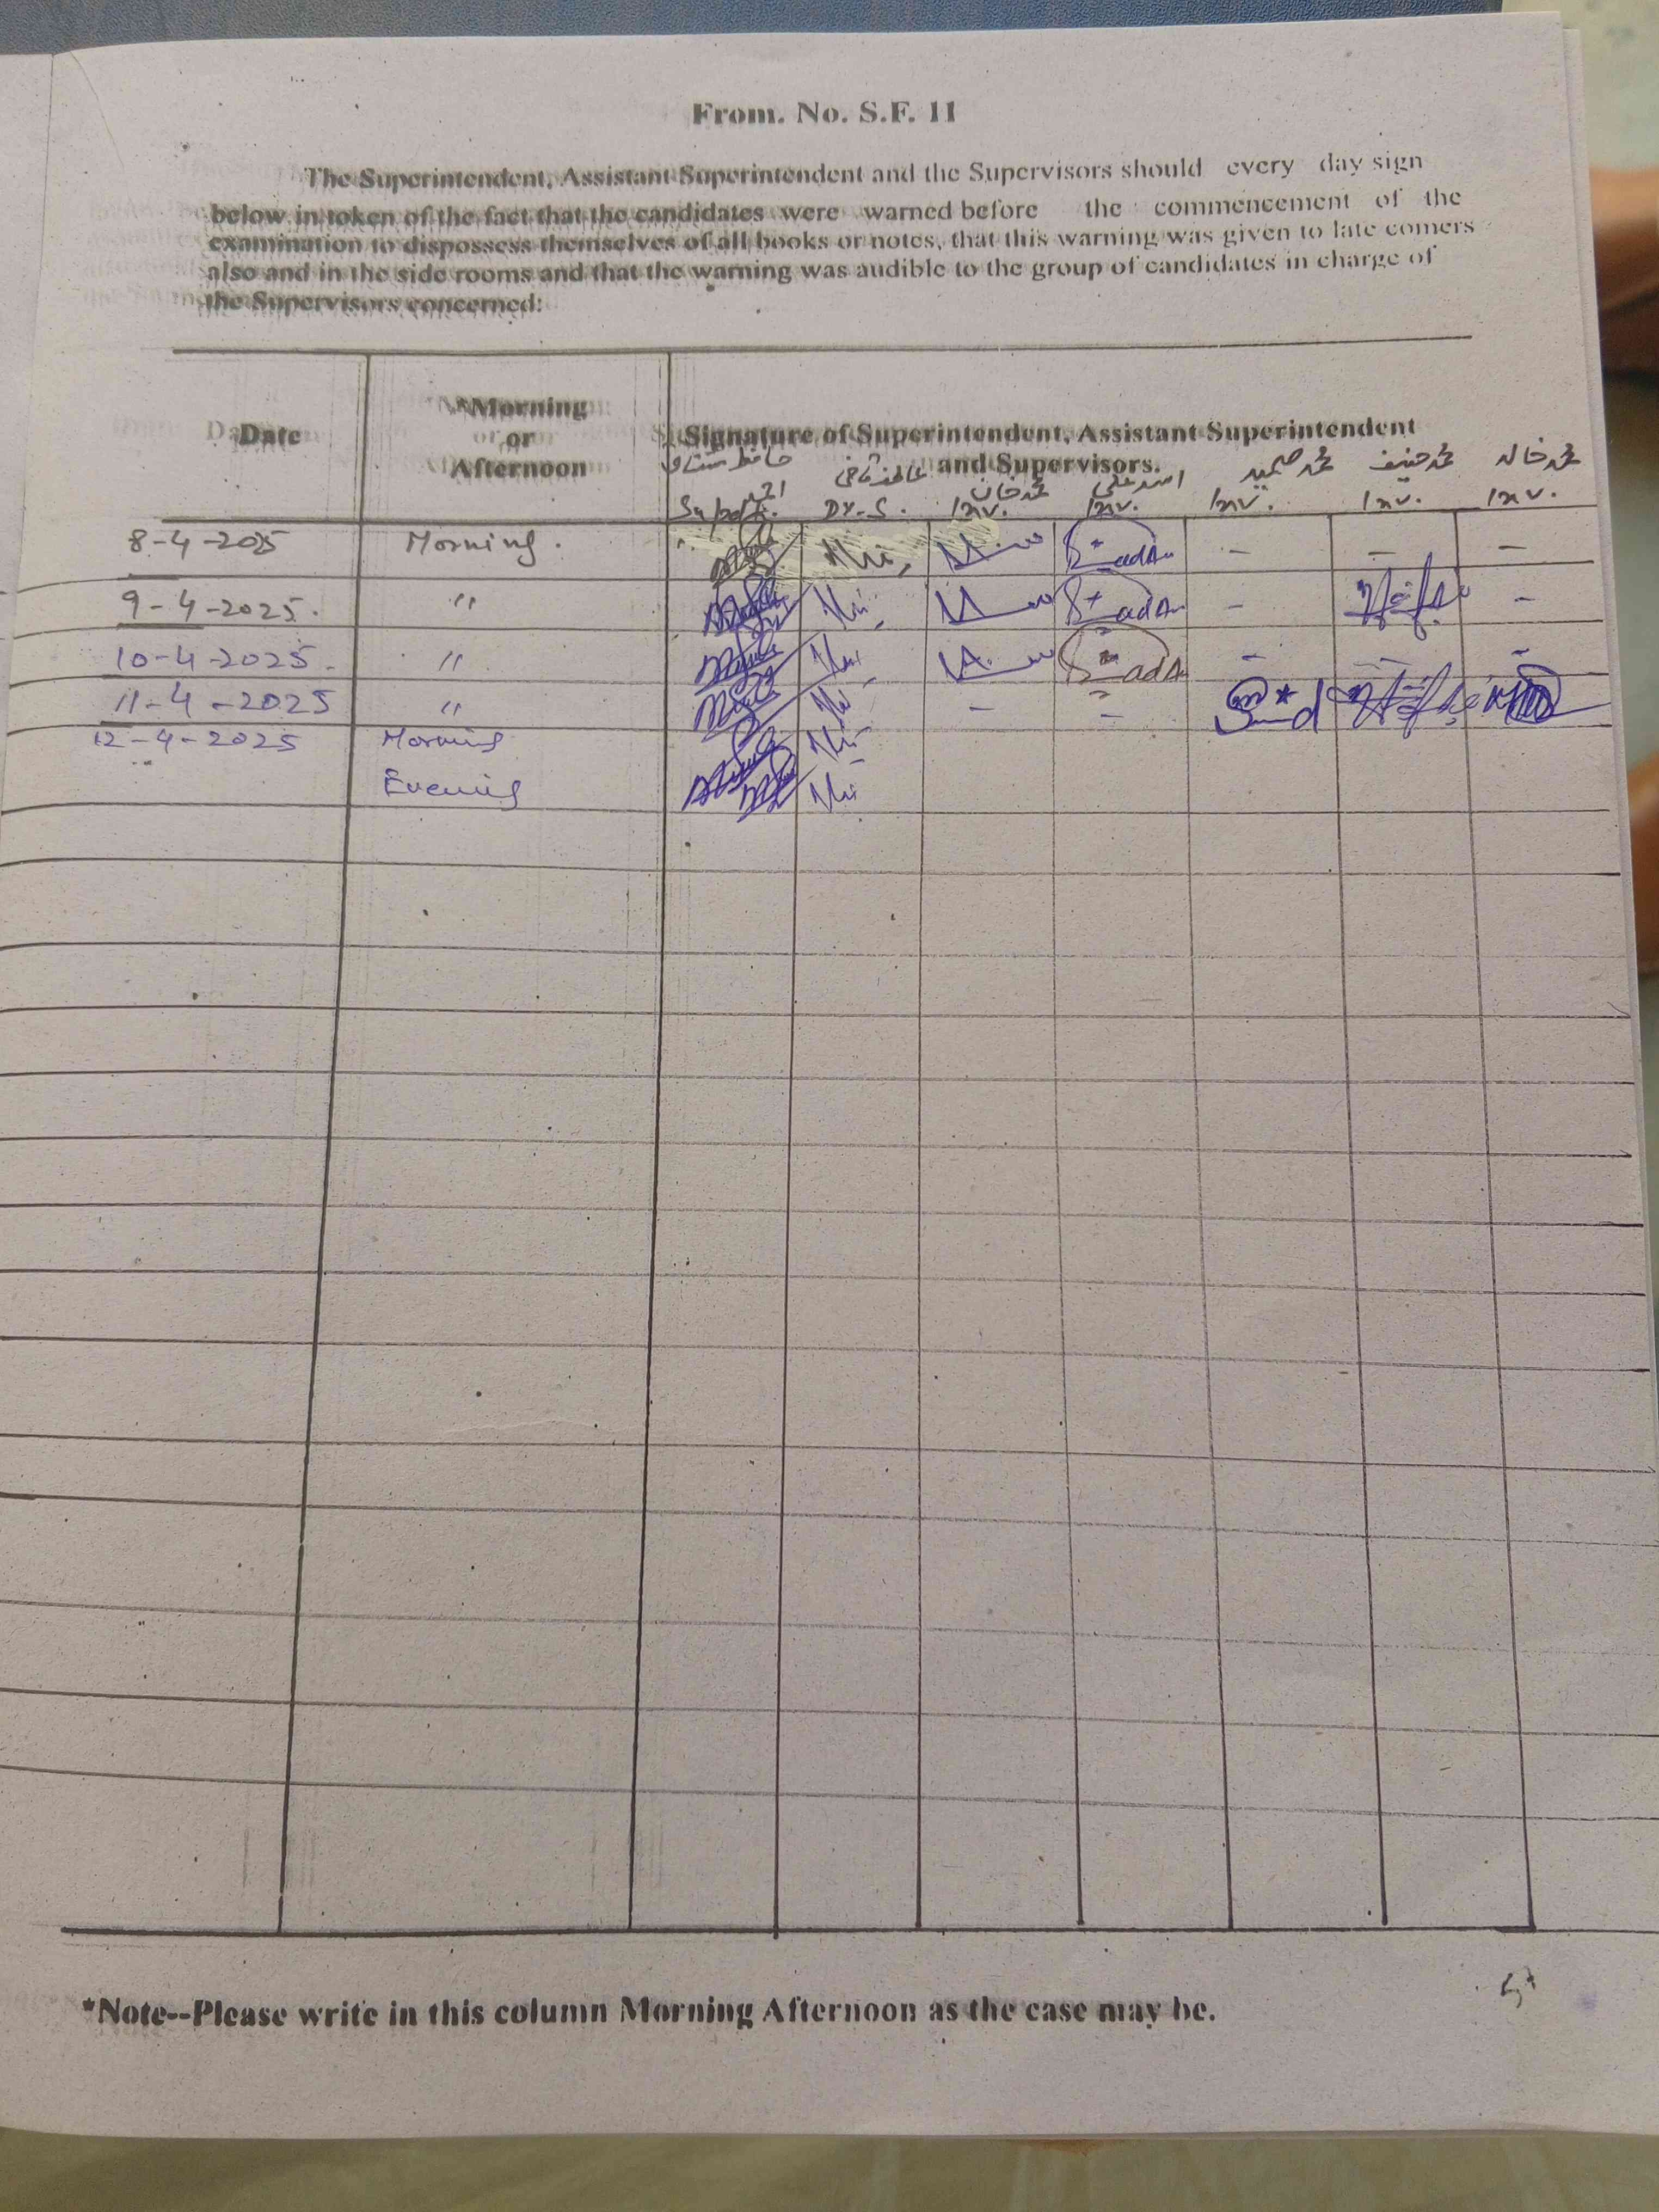 From. No. S.F. 11
The Superintendent, Assistant Superintendent and the Supervisors should every day sign
below in token of the fact that the candidates were warned before the commencement of the
examination to dispossess themselves of all books or notes, that this warning was given to late comers
also and in the side rooms and that the warning was audible to the group of candidates in charge of
the Supervisors concerned:
Date
*Morning
or
Afternoon
Signature of Superintendent, Assistant Superintendent
and Supervisors.
محمد خان اسد علی محمد صمید محمد حنیف محمد خالد
Supdt. Dy-S. Inv. Inv. Inv. Inv. Inv.
8-4-2025 Morning. - - -
9-4-2025. " - -
10-4-2025. " - - -
11-4-2025 " - -
12-4-2025 Morning
Evening
*Note--Please write in this column Morning Afternoon as the case may be.